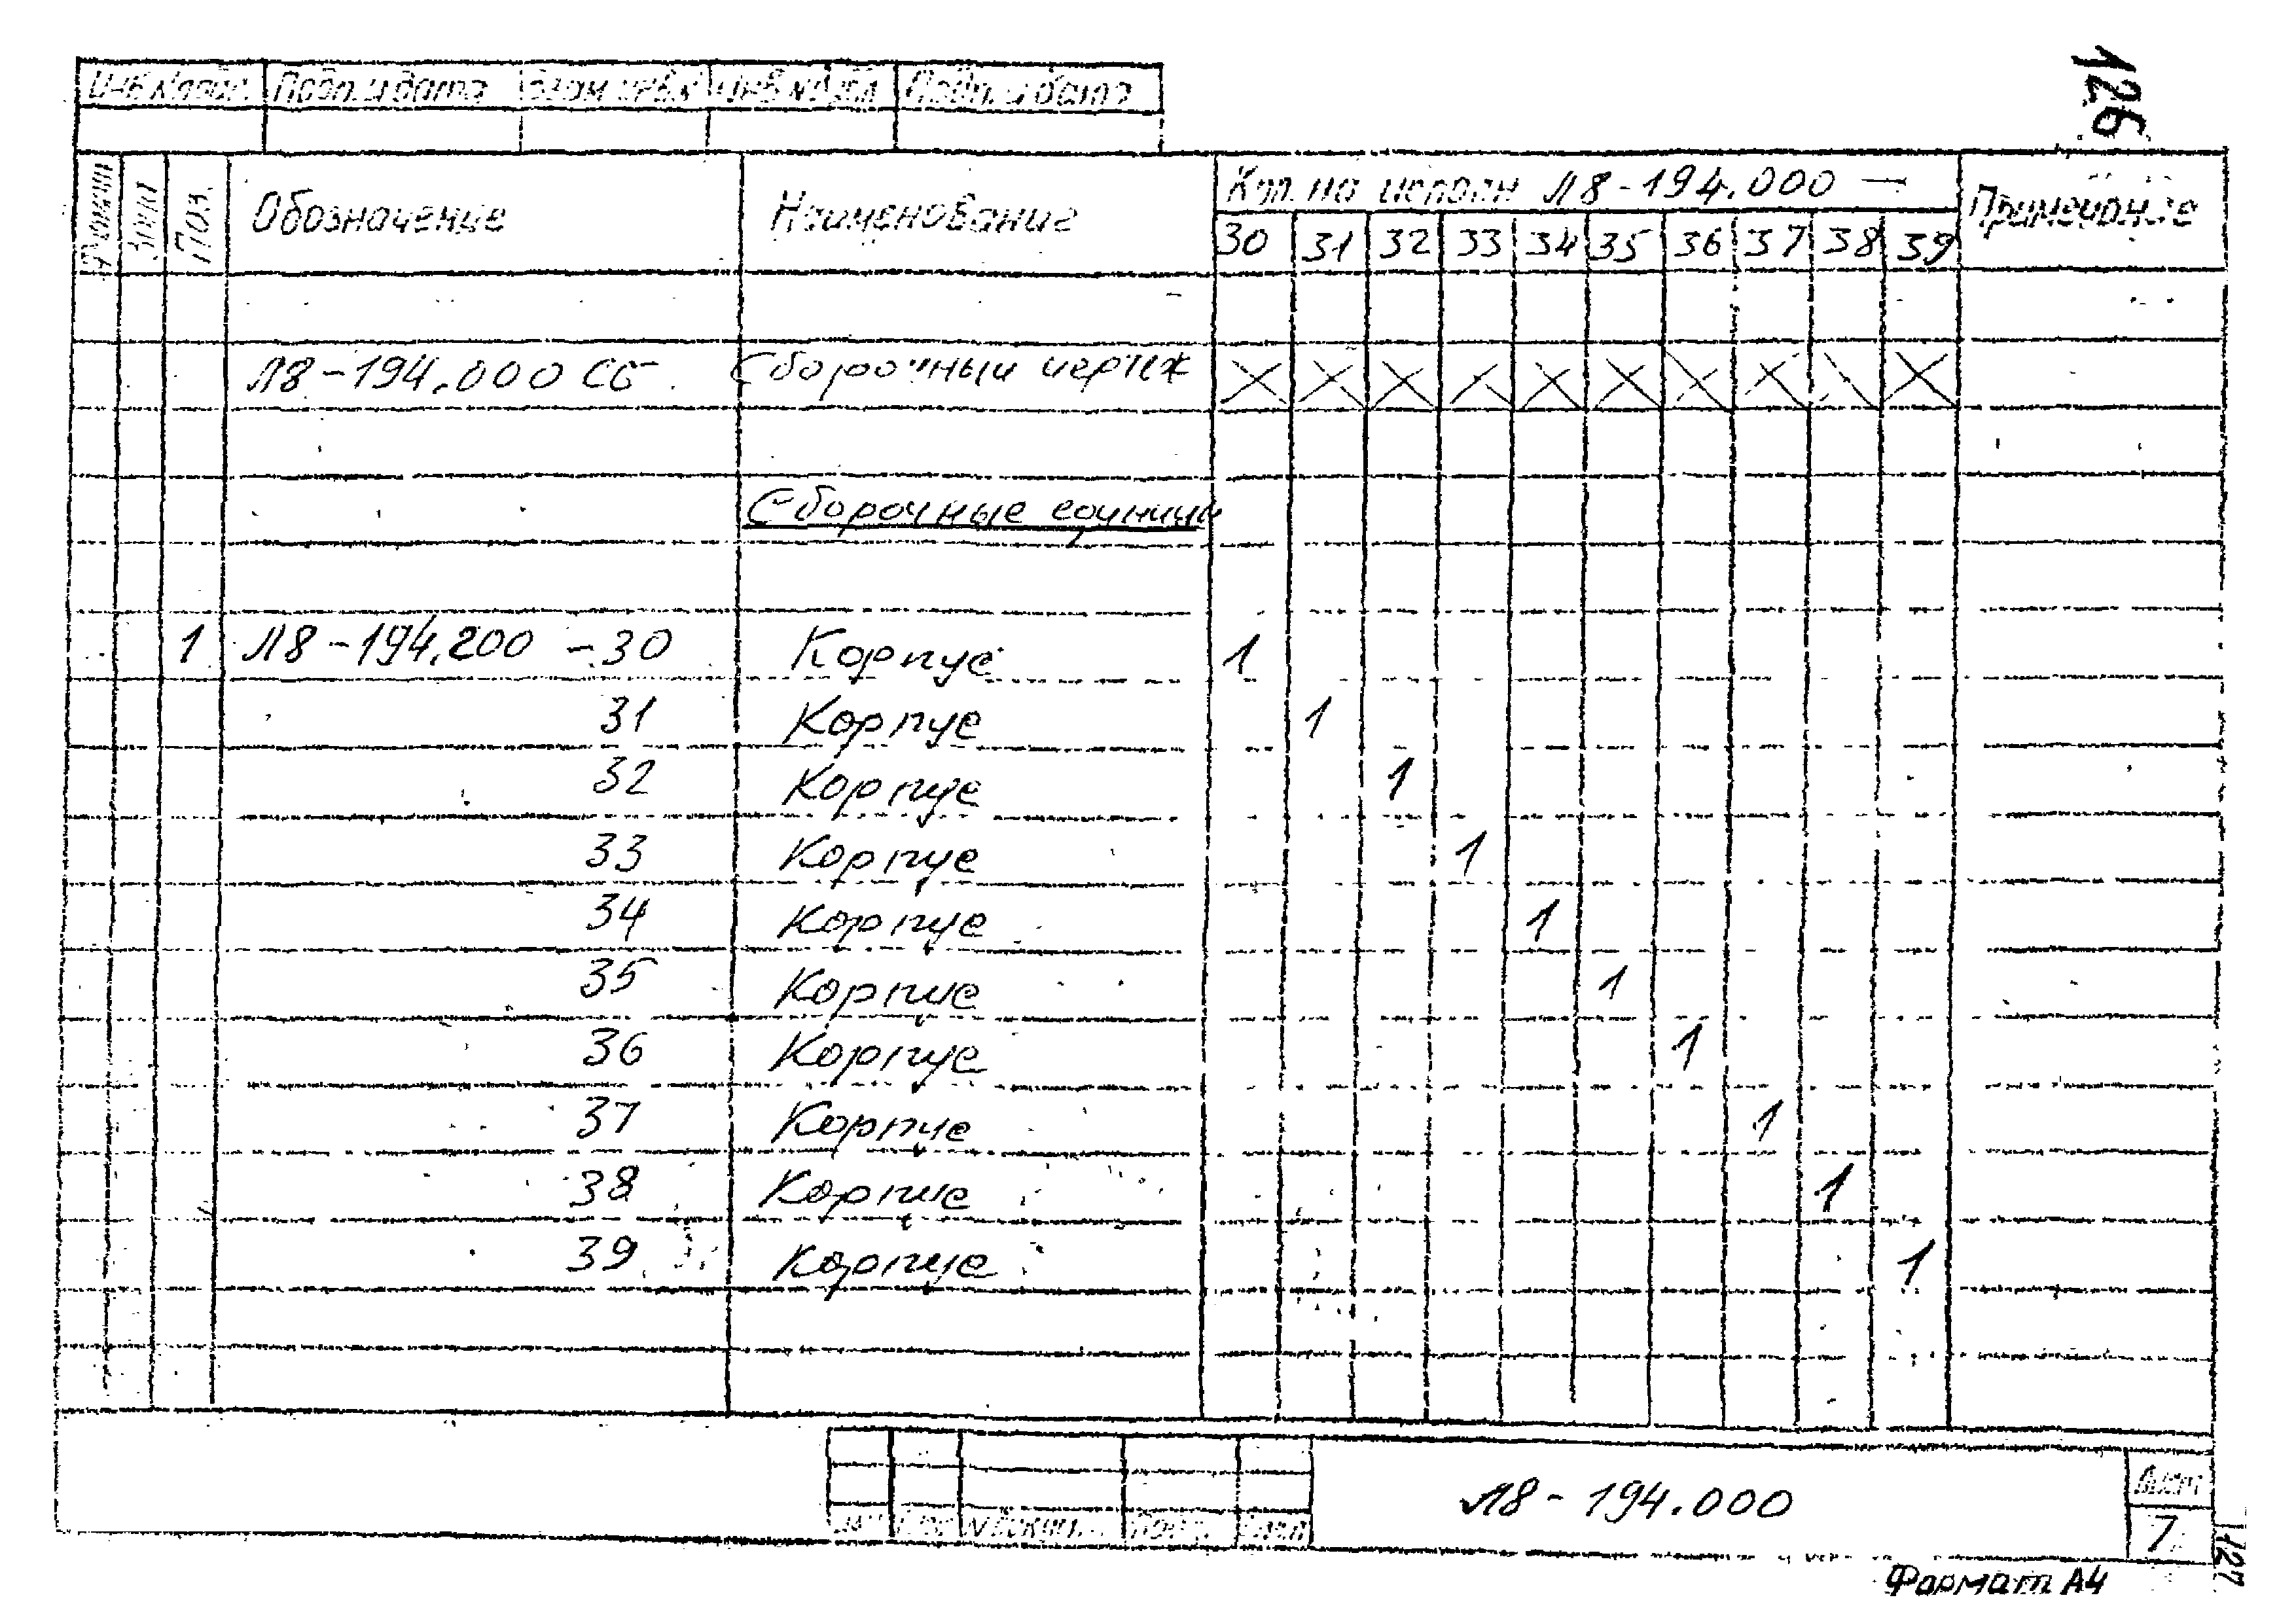 126
Инв № подл. Подп. и дата Взам. инв. № Инв № дубл Подп. и дата
Формат Зона Поз. Обозначение Наименование Кол. на исполн Л8-194.000 — Примечание
30 31 32 33 34 35 36 37 38 39
Л8-194.000 СБ Сборочный чертеж
Сборочные единицы
1 Л8-194.200 -30 Корпус 1
31 Корпус 1
32 Корпус 1
33 Корпус 1
34 Корпус 1
35 Корпус 1
36 Корпус 1
37 Корпус 1
38 Корпус 1
39 Корпус 1
Л8-194.000
Лист
7
127
Формат А4